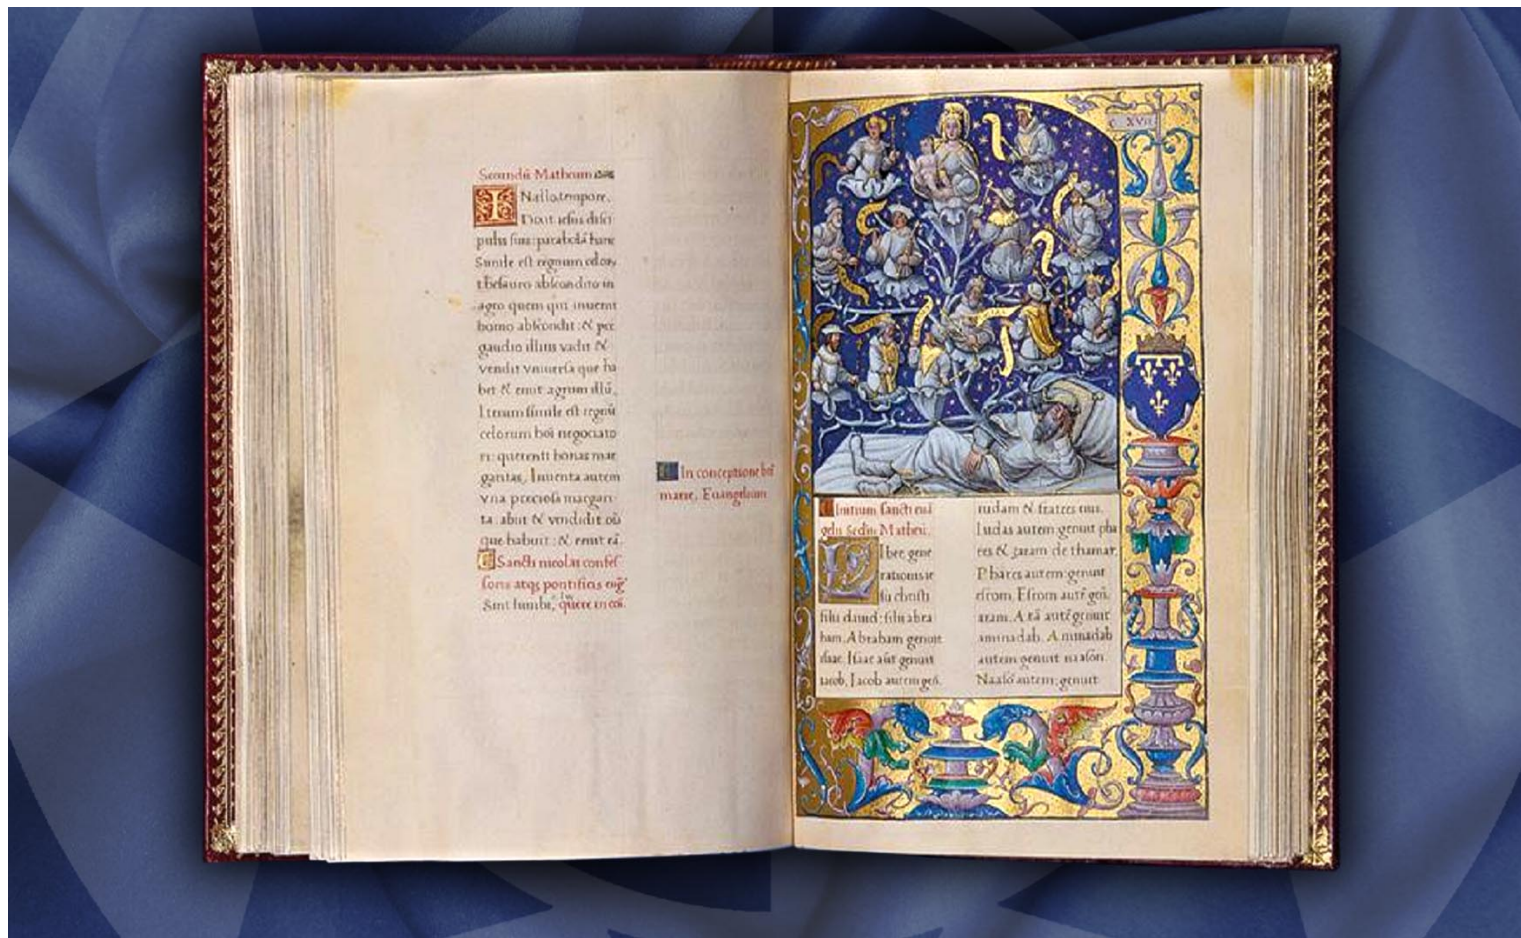 Secundũ Matheum
IN illo tempore.
Dixit iesus disci
pulis suis: parabolã hanc
Simile est regnum celorꝝ
thesauro abscondito in
agro quem qui inuenit
homo abscondit: & pre
gaudio illius vadit &
vendit vniuersa que ha
bet & emit agrum illũ.
Iterum simile est regnũ
celorum hoĩ negociato
ri: querenti bonas mar
garitas. Inuenta autem
vna preciosa margari
ta: abiit & vendidit oĩa
que habuit: & emit eã.
Sancti nicolai confes
soris atqꝫ pontificis eug̃
Sint lumbi, quere in cõi.
In conceptione btẽ
marie. Euangelium
C XVII
Initium sancti euã
gelii scdm̃ Mathei.
LIber gene
rationis ie
su christi
filii dauid: filii abra
ham. Abraham genuit
isaac. Isaac aũt genuit
iacob. Iacob autem geñ.
iudam & fratres eius.
Iudas autem genuit pha
res & zaram de thamar.
Phares autem: genuit
esrom. Esrom autẽ geñ.
aram. Arã autẽ genuit
aminadab. Aminadab
autem genuit naason.
Naasõ autem: genuit